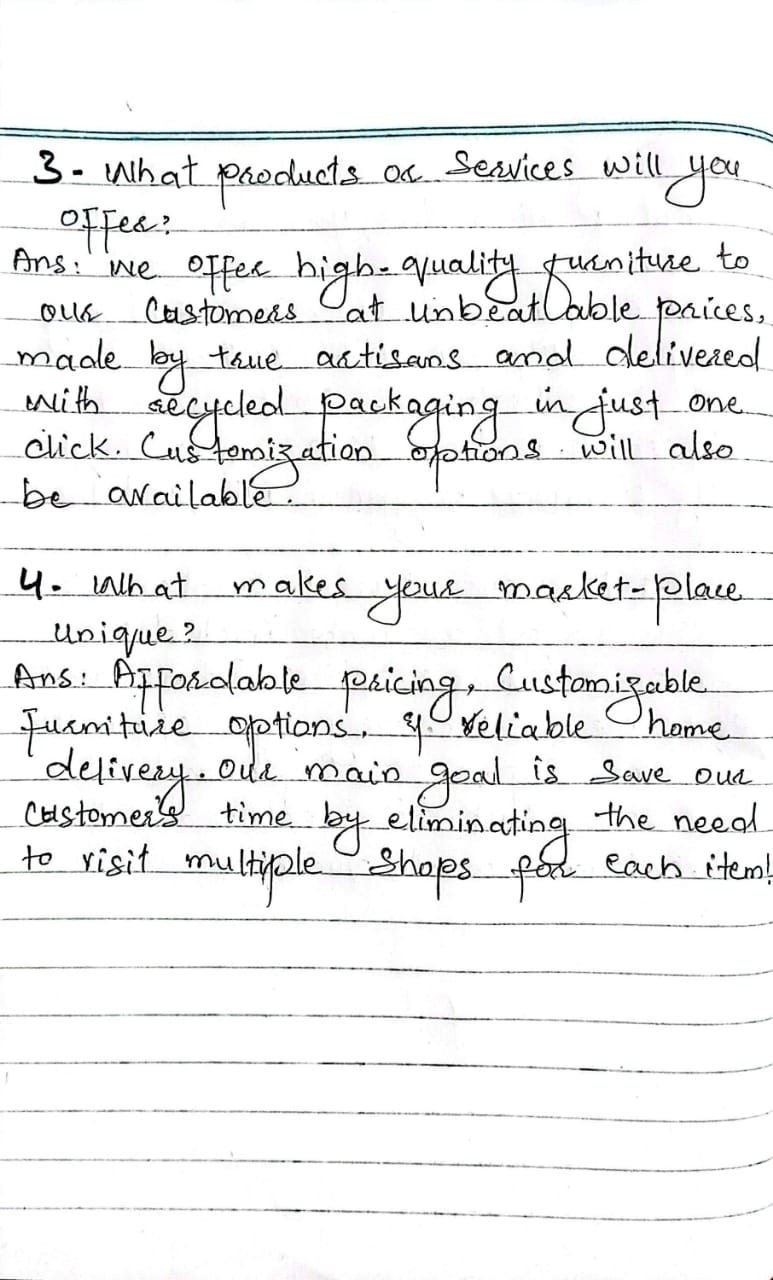 3- What products or Services will you
offer?
Ans: We offer high-quality furniture to
our Customers at unbeatable prices,
made by true artisans and delivered
with recycled packaging in just one
click. Customization options will also
be available.
4. What makes your market-place
unique?
Ans: Affordable pricing, Customizable
furniture options, & reliable home
delivery. Our main goal is Save our
Customer's time by eliminating the need
to visit multiple Shops for each item!